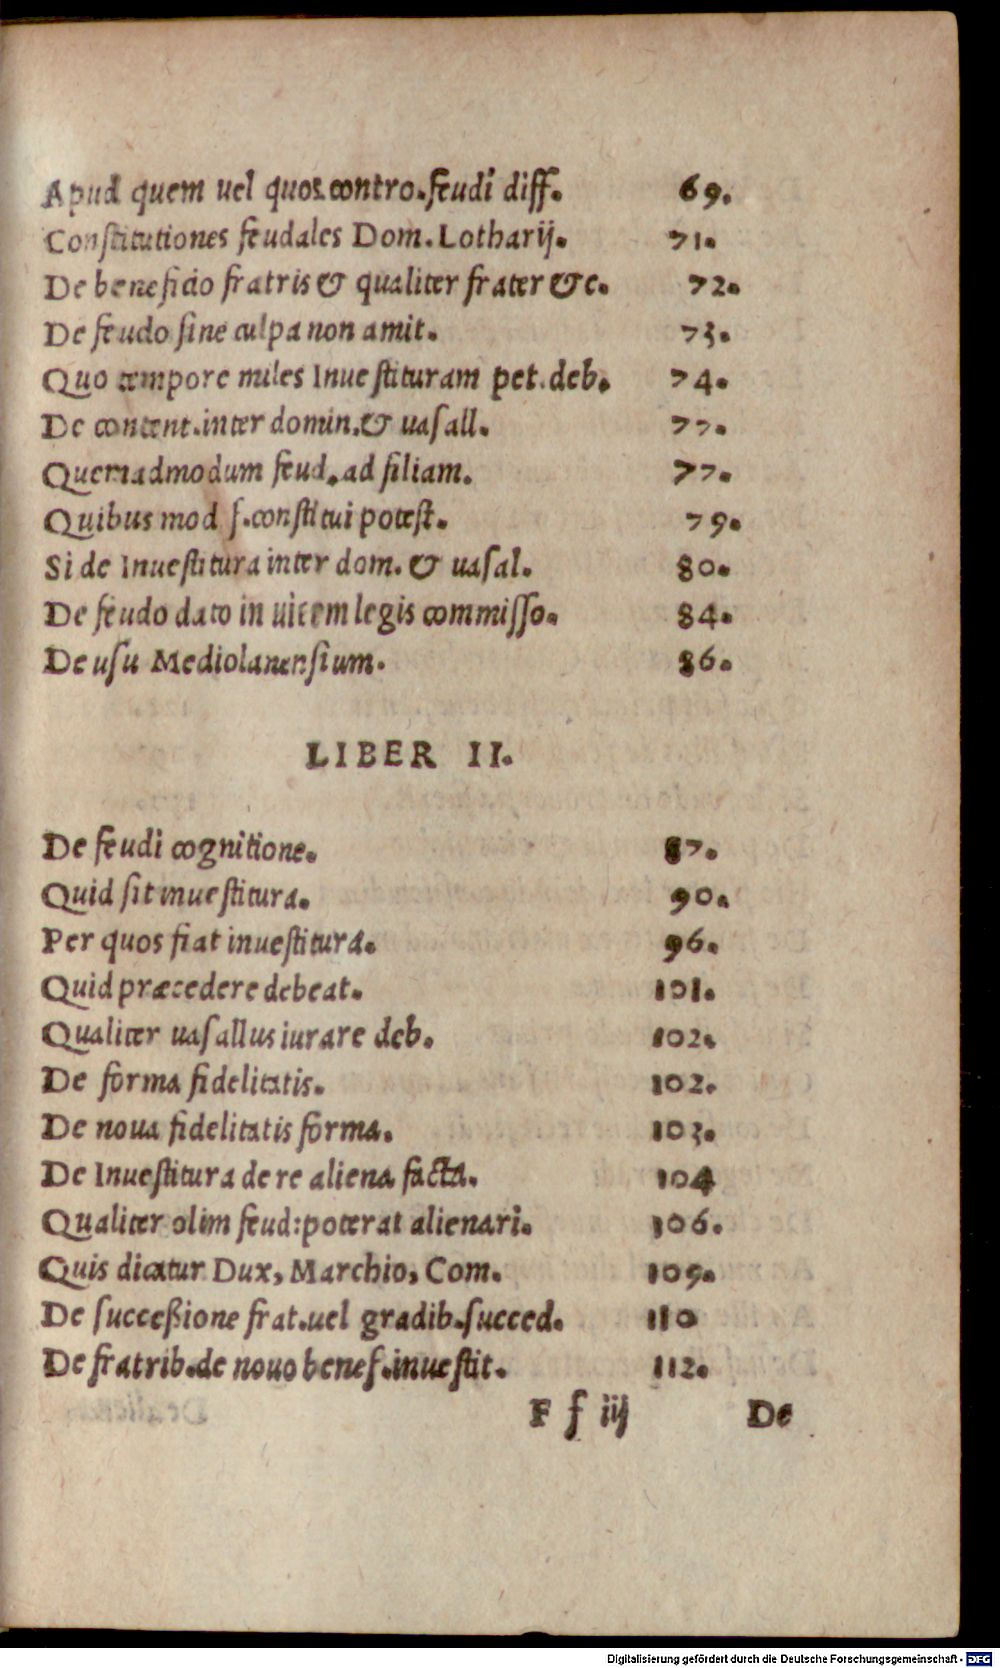 Apud quem uel quos contro.feudi diff. 69.
Conſtitutiones feudales Dom. Lotharij. 71.
De beneficio fratris & qualiter frater &c. 72.
De feudo ſine culpa non amit. 73.
Quo tempore miles Inueſtituram pet. deb. 74.
De content. inter domin. & uaſall. 77.
Quemadmodum feud. ad filiam. 77.
Quibus mod f. conſtitui poteſt. 79.
Si de Inueſtitura inter dom. & uaſal. 80.
De feudo dato in uicem legis commiſſo. 84.
De uſu Mediolanenſium. 86.
LIBER II.
De feudi cognitione. 87.
Quid ſit inueſtitura. 90.
Per quos fiat inueſtitura. 96.
Quid præcedere debeat. 101.
Qualiter uaſallus iurare deb. 102.
De forma fidelitatis. 102.
De noua fidelitatis forma. 103.
De Inueſtitura de re aliena facta. 104
Qualiter olim feud: poterat alienari. 106.
Quis dicatur Dux, Marchio, Com. 109.
De ſucceßione frat. uel gradib. ſucced. 110
De fratrib. de nouo benef. inueſtit. 112.
F f iij De
Digitalisierung gefördert durch die Deutsche Forschungsgemeinschaft - DFG